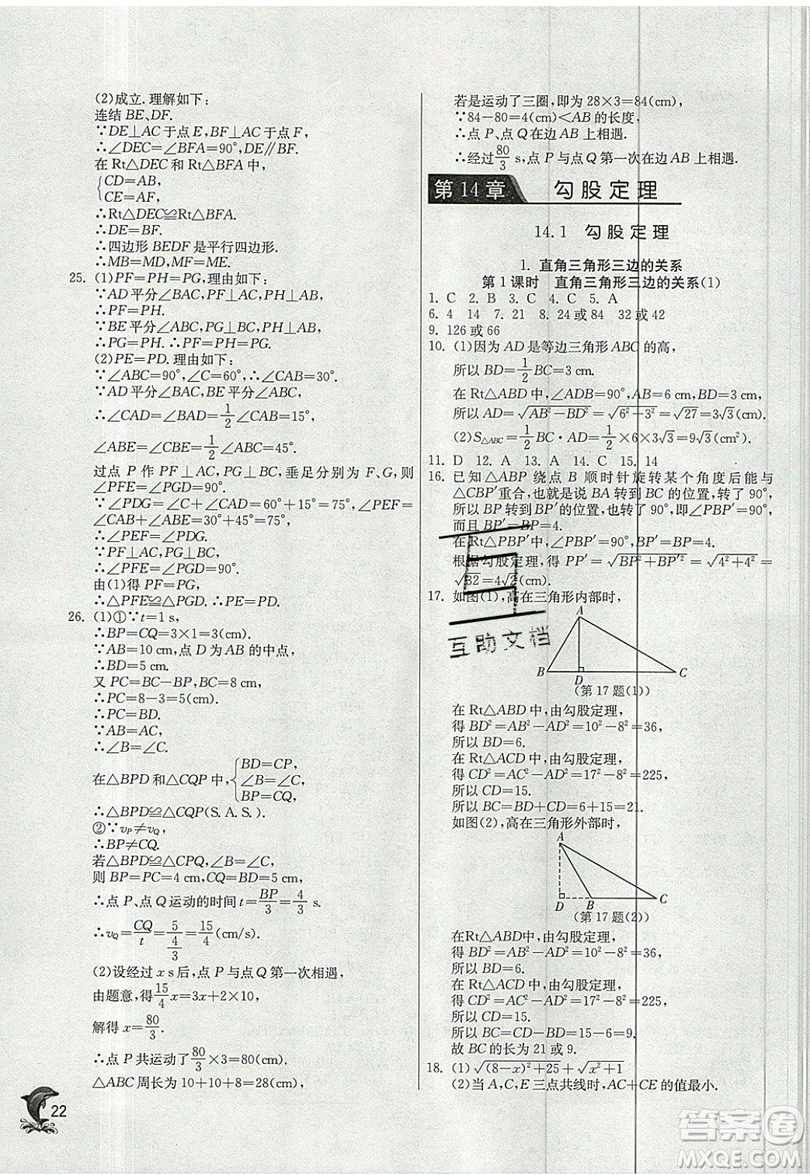 (2)成立.理解如下:
连结 BE、DF.
∵DE⊥AC于点E,BF⊥AC于点F,
∴∠DEC=∠BFA=90°,
在 Rt△DEC 和 Rt△BFA 中,
{CD=AB,
CE=AF,
∴Rt△DEC≌Rt△BFA.
∴DE=BF.
∴四边形 BEDF 是平行四边形.
∴MB=MD,ME=MF.
25. (1)PF=PH=PG,理由如下:
∵AD平分∠BAC,PF⊥AC,PH⊥AB,
∴PF=PH.
∵BE平分∠ABC,PG⊥BC,PH⊥AB,
∴PH=PG.∴PF=PH=PG.
(2)PE=PD.理由如下:
∵∠ABC=90°,∠C=60°,∴∠CAB=30°.
∵AD平分∠BAC,BE平分∠ABC,
∴∠CAD=∠BAD=1/2∠CAB=15°,
∠ABE=∠CBE=1/2∠ABC=45°.
过点 P 作 PF⊥AC, PG⊥BC, 垂足分别为 F、G,则
∠PFE=∠PGD=90°.
∵∠PDG=∠C+∠CAD=60°+15°=75°,∠PEF=
∠CAB+∠ABE=30°+45°=75°,
∴∠PEF=∠PDG.
又∵PF⊥AC,PG⊥BC,
∴∠PFE=∠PGD=90°.
由(1)得 PF=PG,
∴△PFE≌△PGD.∴PE=PD.
26. (1)①∵t=1 s,
∴BP=CQ=3×1=3(cm).
∵AB=10 cm,点 D 为 AB 的中点,
∴BD=5 cm.
又 PC=BC-BP,BC=8 cm,
∴PC=8-3=5(cm).
∴PC=BD.
∵AB=AC,
∴∠B=∠C.
在△BPD 和△CQP 中,{BD=CP,
∠B=∠C,
BP=CQ,
∴△BPD≌△CQP(S.A.S.).
②∵vP≠vQ,
∴BP≠CQ.
若△BPD≌△CPQ,∠B=∠C,
则 BP=PC=4 cm,CQ=BD=5 cm.
∴点 P、点 Q 运动的时间 t=BP/3=4/3 s.
∴vQ=CQ/t=5/(4/3)=15/4(cm/s).
(2)设经过 x s后,点 P 与点 Q 第一次相遇,
由题意,得15/4x=3x+2×10,
解得 x=80/3.
∴点 P 共运动了80/3×3=80(cm).
△ABC 周长为 10+10+8=28(cm),
22
若是运动了三圈,即为 28×3=84(cm),
∵84-80=4(cm)<AB 的长度,
∴点 P、点 Q 在边 AB 上相遇.
∴经过80/3 s,点 P 与点 Q 第一次在边 AB 上相遇.
第14章 勾股定理
14.1 勾股定理
1. 直角三角形三边的关系
第1课时 直角三角形三边的关系(1)
1. C 2. B 3. C 4. C 5. A
6. 4 14 7. 28.5 8. 24或84 32或42
9. 126或66
10. (1)因为 AD 是等边三角形 ABC 的高,
所以 BD=1/2BC=3 cm.
在 Rt△ABD 中,∠ADB=90°,AB=6 cm,
所以 AD=√AB²-BD²=√6²-3²=√27=3√3(cm).
(2)S△ABC=1/2BC·AD=1/2×6×3√3=9√3(cm²).
11. D 12. A 13. A 14. 5 15. 14
16. 已知△ABP 绕点 B 顺时针旋转某个角度后能与
△CBP′重合,也就是说 BA 转到 BC 的位置,转了 90°,
所以 BP 转到 BP′的位置,也转了 90°,即∠PBP′=90°,
而且 BP′=BP=4.
在Rt△PBP′中,∠PBP′=90°,BP′=BP=4.
根据勾股定理,得 PP′=√BP²+BP′²=√4²+4²=
√32=4√2(cm).
17. 如图(1),高在三角形内部时,
A
B D C
(第17题(1))
在 Rt△ABD 中,由勾股定理,
得 BD²=AB²-AD²=10²-8²=36,
所以 BD=6.
在 Rt△ACD 中,由勾股定理,
得 CD²=AC²-AD²=17²-8²=225,
所以 CD=15.
所以 BC=BD+CD=6+15=21.
如图(2),高在三角形外部时,
A
D B C
(第17题(2))
在Rt△ABD中,由勾股定理,
得 BD²=AB²-AD²=10²-8²=36,
所以 BD=6.
在Rt△ACD 中,由勾股定理,
得 CD²=AC²-AD²=17²-8²=225,
所以 CD=15.
所以 BC=CD-BD=15-6=9.
故 BC 的长为 21 或 9.
18. (1)√(8-x)²+25+√x²+1
(2)当 A、C、E 三点共线时,AC+CE 的值最小.
互助文档
答案圈
MXQE.COM